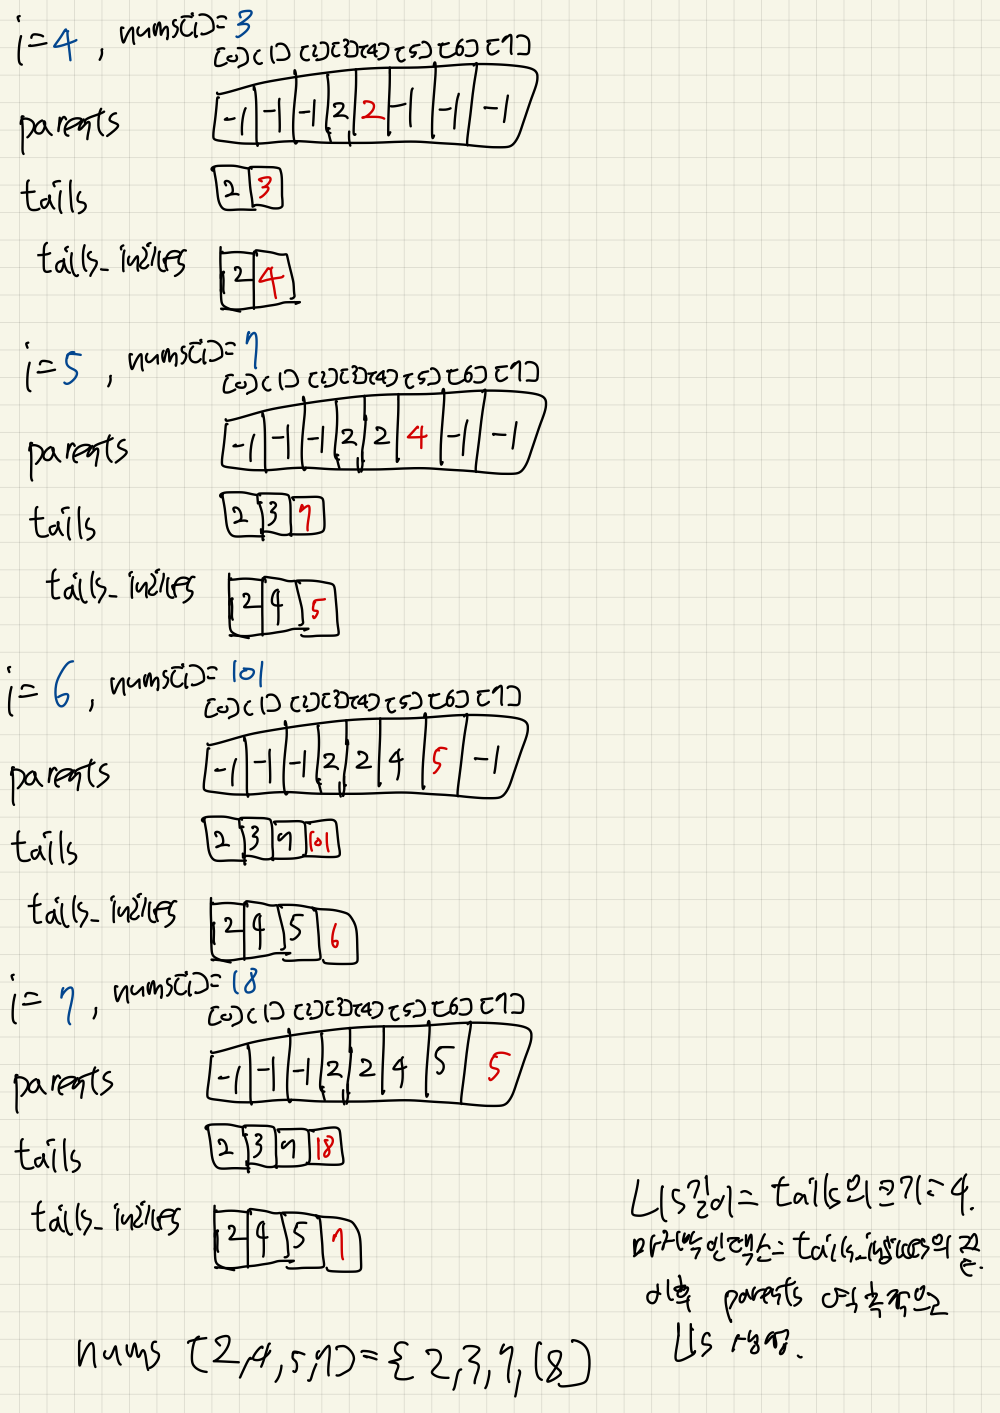 i=4, nums[i]=3
[0] [1] [2] [3] [4] [5] [6] [7]
parents -1 -1 -1 2 2 -1 -1 -1
tails 2 3
tails_indices 2 4
i=5, nums[i]=7
[0] [1] [2] [3] [4] [5] [6] [7]
parents -1 -1 -1 2 2 4 -1 -1
tails 2 3 7
tails_indices 2 4 5
i=6, nums[i]=101
[0] [1] [2] [3] [4] [5] [6] [7]
parents -1 -1 -1 2 2 4 5 -1
tails 2 3 7 101
tails_indices 2 4 5 6
i=7, nums[i]=18
[0] [1] [2] [3] [4] [5] [6] [7]
parents -1 -1 -1 2 2 4 5 5
tails 2 3 7 18
tails_indices 2 4 5 7
LIS길이= tails의 크기= 4.
마지막 인덱스= tails_indices의 끝.
이후 parents 역추적으로
LIS 생성.
nums [2,4,5,7] = { 2,3,7,18 }